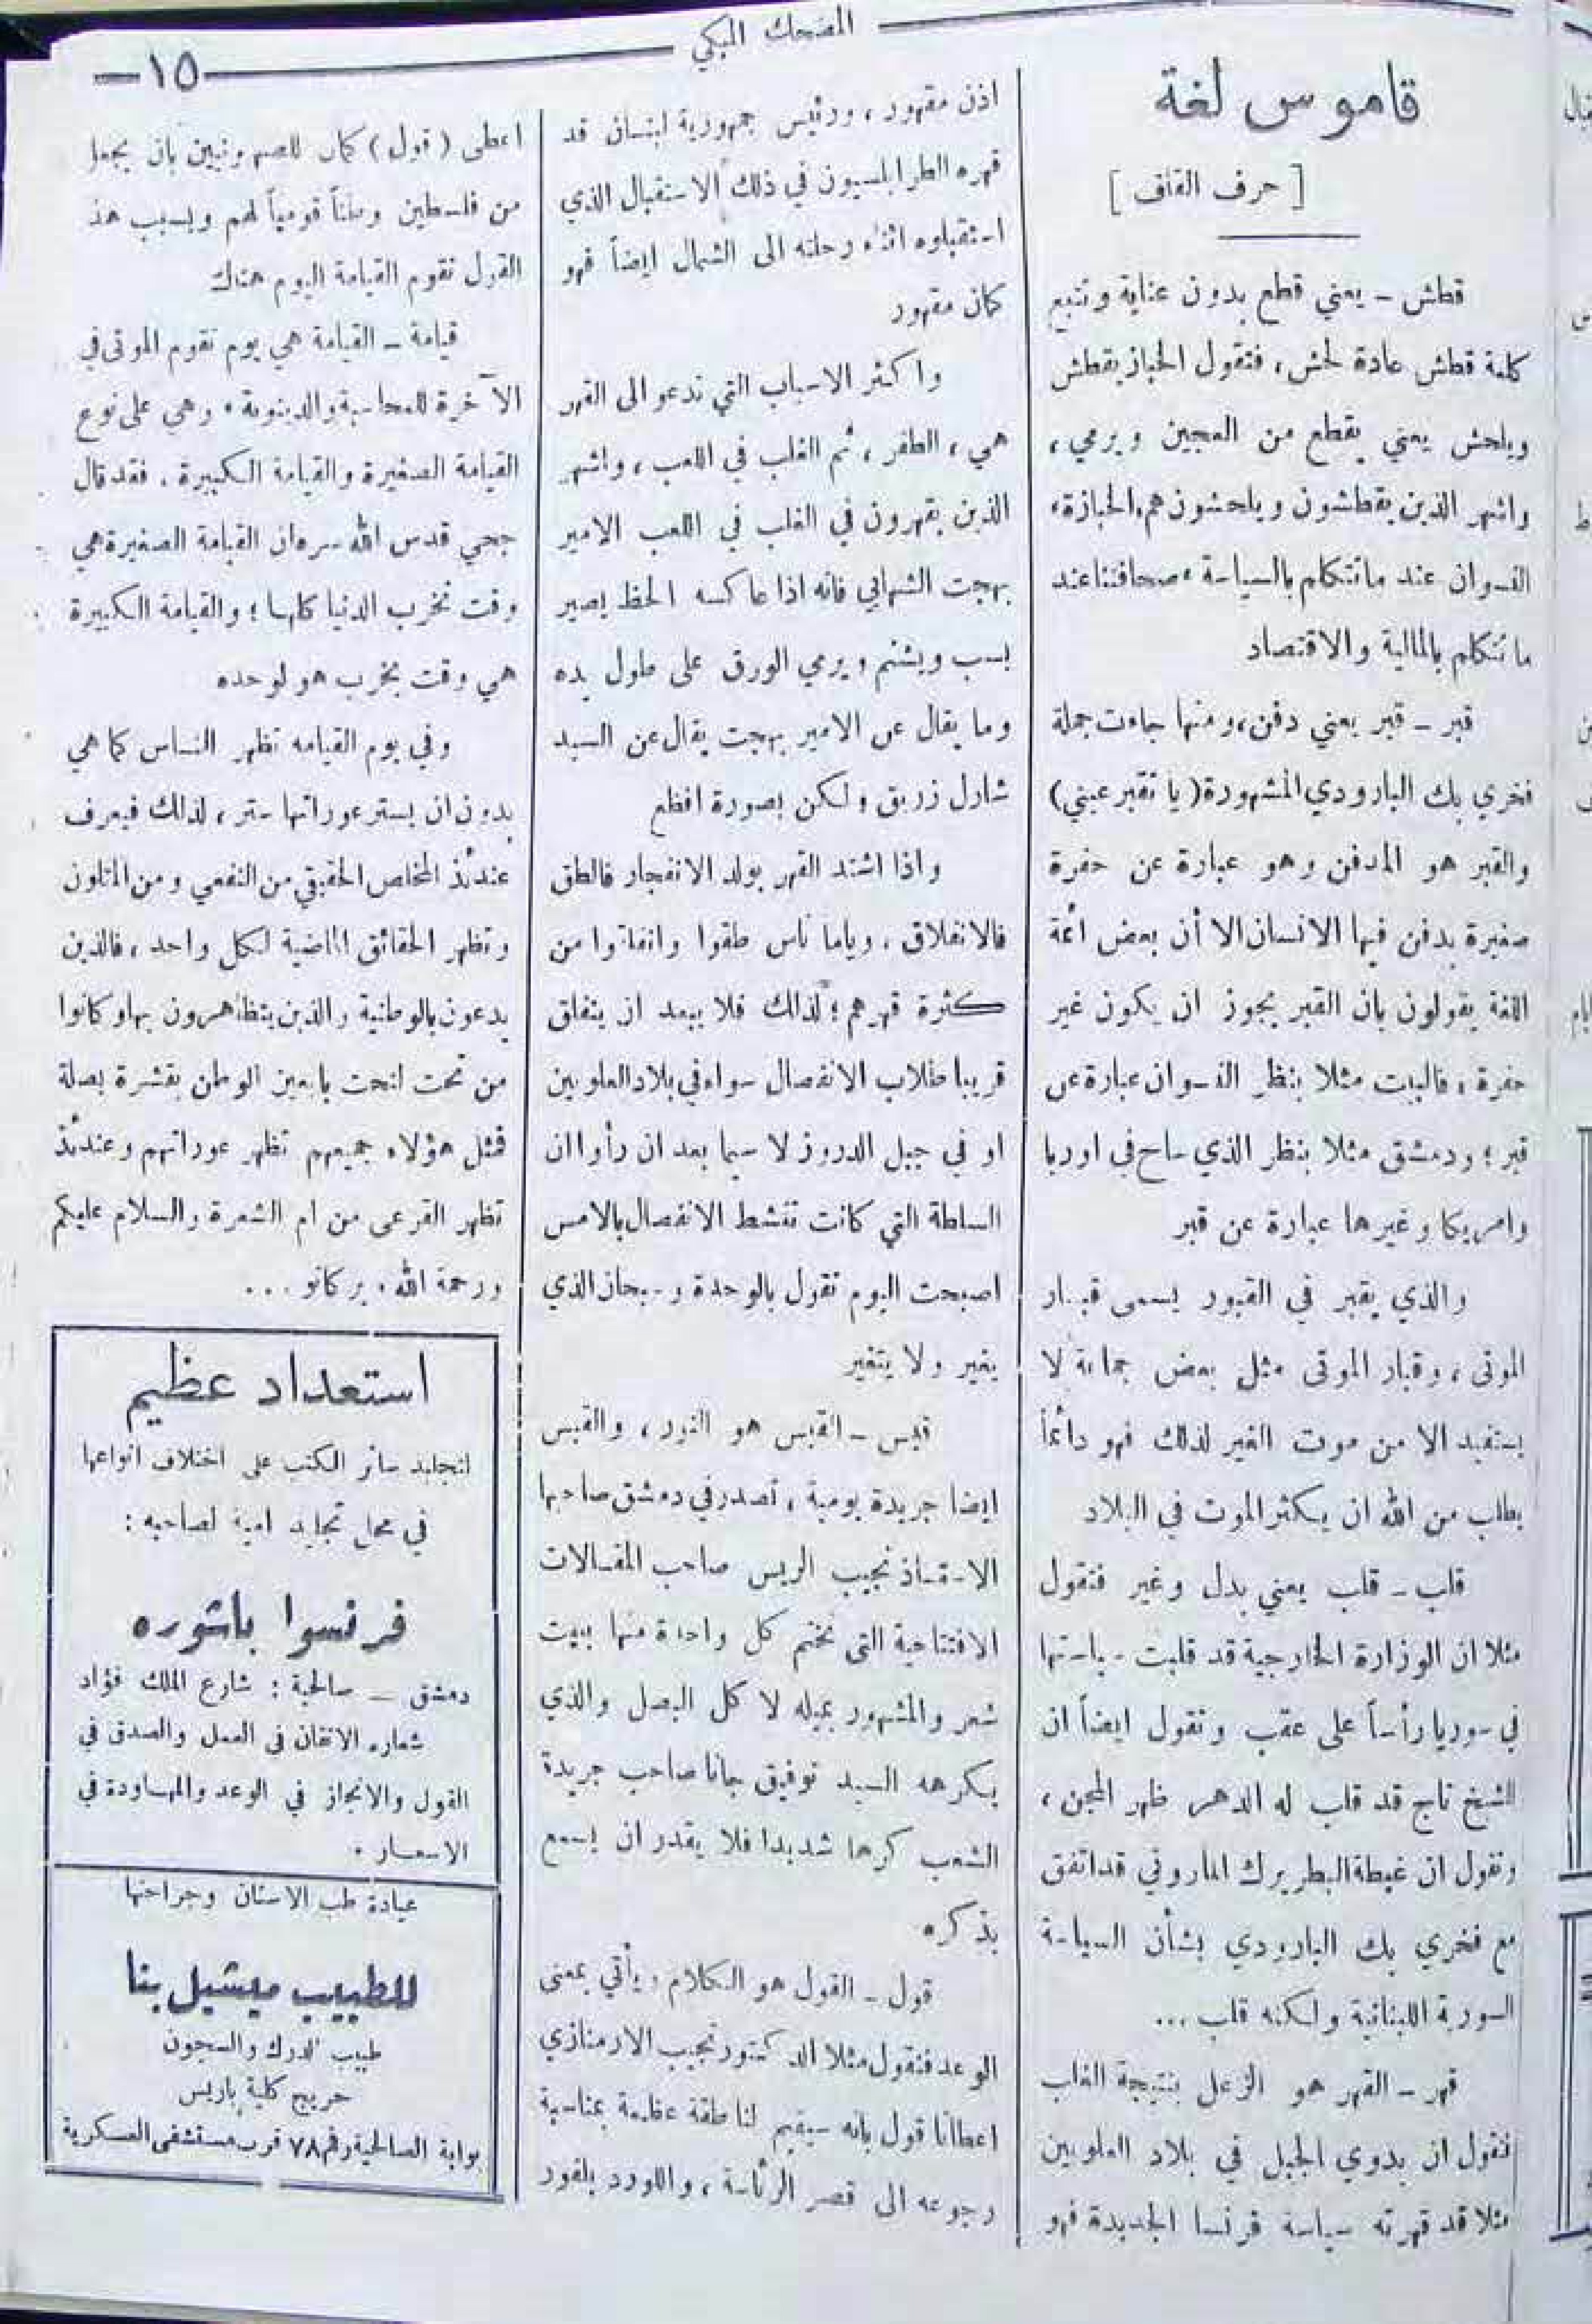 المضحك المبكي
١٥
قاموس لغة
[ حرف القاف ]
قطش – يعني قطع بدون عناية وتتبع
كلمة قطش عادة لحش ، فتقول الخباز يقطش
ويلحش يعني يقطع من العجين ويرمي ،
واشهر الذين يقطشون ويلحشون هم الخبازة ،
النسوان عند ما تتكلم بالسياسة ، صحافتنا عند
ما تتكلم بالمالية والاقتصاد
قبر – قبر يعني دفن ، ومنها جاءت جملة
فخري بك البارودي المشهورة ( يا تقبر عيني )
والقبر هو المدفن وهو عبارة عن حفرة
صغيرة يدفن فيها الانسان الا أن بعض ائمة
اللغة يقولون بان القبر يجوز ان يكون غير
حفرة ، فالبيت مثلا بنظر النسوان عبارة عن
قبر ؛ ودمشق مثلا بنظر الذي ساح في اوربا
وامريكا وغيرها عبارة عن قبر
والذي يقبر في القبور يسمى قبار
الموتى ، وقبار الموتى مثل بعض جماعة لا
يستفيد الا من موت الغير لذلك فهو دائماً
يطلب من الله ان يكثر الموت في البلاد
قلب – قلب يعني بدل وغير فتقول
مثلا ان الوزارة الخارجية قد قلبت سياستها
في سوريا رأساً على عقب وتقول ايضاً ان
الشيخ تاج قد قلب له الدهر ظهر المجن ،
وتقول ان غبطة البطريرك الماروني قد اتفق
مع فخري بك البارودي بشأن السياسة
السورية اللبنانية ولكنه قلب ...
قهر – القهر هو الزعل بنتيجة الغلب
فتقول ان بدوي الجبل في بلاد العلويين
مثلا قد قهرته سياسة فرنسا الجديدة فهو
اذن مقهور ، ورئيس جمهورية لبنان قد
قهره الطرابلسيون في ذلك الاستقبال الذي
استقبلوه اثناء رحلته الى الشمال ايضاً فهو
كمان مقهور
واكثر الاسباب التي تدعو الى القهر
هي ، الطفر ، ثم الغلب في اللعب ، واشهر
الذين يقهرون في الغلب في اللعب الامير
بهجت الشهابي فانه اذا عاكسه الحظ يصير
يسب ويشتم ويرمي الورق على طول يده
وما يقال عن الامير بهجت يقال عن السيد
شارل زريق ولكن بصورة افظع
واذا اشتد القهر يولد الانفجار فالطق
فالانفلاق ، وياما ناس طقوا وانفلقوا من
كثرة قهرهم ؛ لذلك فلا يبعد ان ينفلق
قريبا طلاب الانفصال سواء في بلاد العلويين
او في جبل الدروز لا سيما بعد ان رأوا ان
السلطة التي كانت تنشط الانفصال بالامس
اصبحت اليوم تقول بالوحدة وسبحان الذي
يغير ولا يتغير
قبس – القبس هو النور ، والقبس
ايضا جريدة يومية ، تصدر في دمشق صاحبها
الاستاذ نجيب الريس صاحب المقالات
الافتتاحية التي تختم كل واحدة منها ببيت
شعر والمشهور بميله لاكل البصل والذي
يكرهه السيد توفيق جانا صاحب جريدة
الشعب كرها شديدا فلا يقدر ان يسمع
بذكره
قول – القول هو الكلام ويأتي بمعنى
الوعد فنقول مثلا الدكتور نجيب الارمنازي
اعطانا قول بانه سيقيم لنا طقة عظيمة بمناسبة
رجوعه الى قصر الرئاسة ، واللورد بلفور
اعطى ( قول ) كمان للصهيونيين بان يجعل
من فلسطين وطناً قومياً لهم وبسبب هذ
القول تقوم القيامة اليوم هناك
قيامة – القيامة هي يوم تقوم الموتى في
الآخرة للمحاسبة والدينونة ، وهي على نوع
القيامة الصغيرة والقيامة الكبيرة . فقد قال
جحي قدس الله سره ان القيامة الصغيرة هي
وقت تخرب الدنيا كلها ؛ والقيامة الكبيرة
هي وقت يخرب هو لوحده
وفي يوم القيامه تظهر الناس كما هي
بدون ان يستر عوراتها ستر ، لذلك فيعرف
عندئذ المخلص الحقيقي من النفعي ومن المتلون
وتظهر الحقائق الماضية لكل واحد ، فالذين
يدعون بالوطنية والذين يتظاهرون بها وكانوا
من تحت لتحت بايعين الوطن بقشرة بصلة
فمثل هؤلاء جميعهم تظهر عوراتهم وعندئذ
تظهر القرعى من ام الشعرة والسلام عليكم
ورحمة الله وبركاتو ...
استعداد عظيم
لتجليد سائر الكتب على اختلاف انواعها
في محل تجليد امية لصاحبه :
فرنسوا باشوره
دمشق – صالحية : شارع الملك فؤاد
شعاره الاتقان في العمل والصدق في
القول والانجاز في الوعد والمهاودة في
الاسعار .
عيادة طب الاسنان وجراحتها
للطبيب ميشيل بنا
طبيب الدرك والسجون
خريج كلية باريس
بوابة الصالحية رقم ٧٨ قرب مستشفى العسكرية